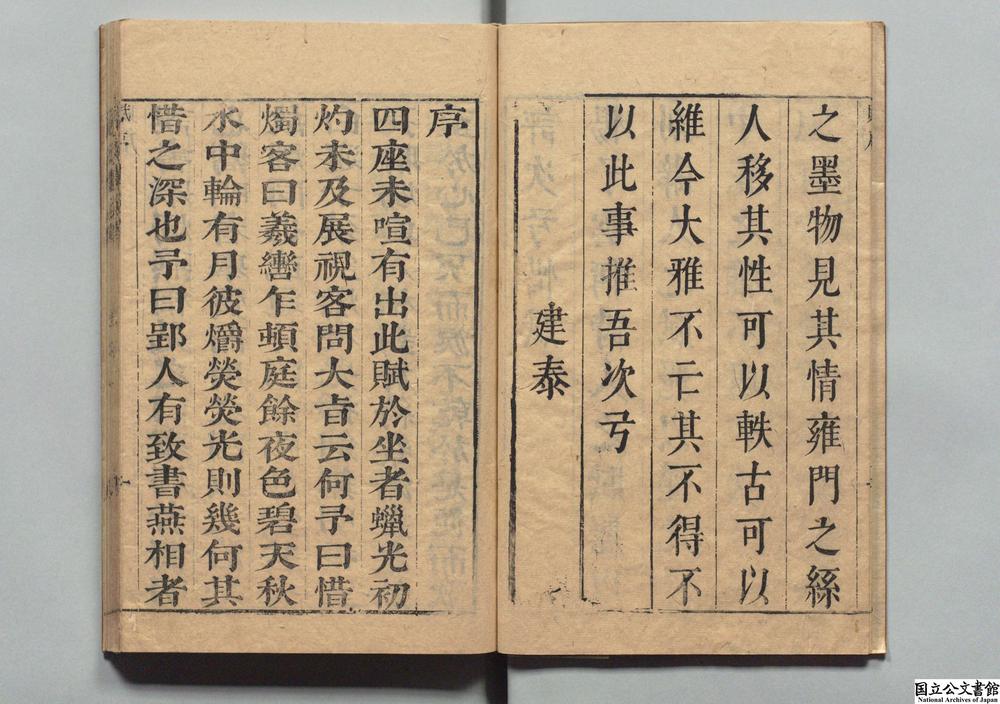 之墨物見其情雍門之絲
人移其性可以軼古可以
維今大雅不亡其不得不
以此事推吾次亏
建泰
序
四座未喧有出此賦於坐者蠟光初
灼未及展視客問大旨云何予曰惜
燭客曰羲轡乍頓庭餘夜色碧天秋
水中輪有月彼爝熒熒光則幾何其
惜之深也予曰郢人有致書燕相者
賦序
国立公文書館
National Archives of Japan